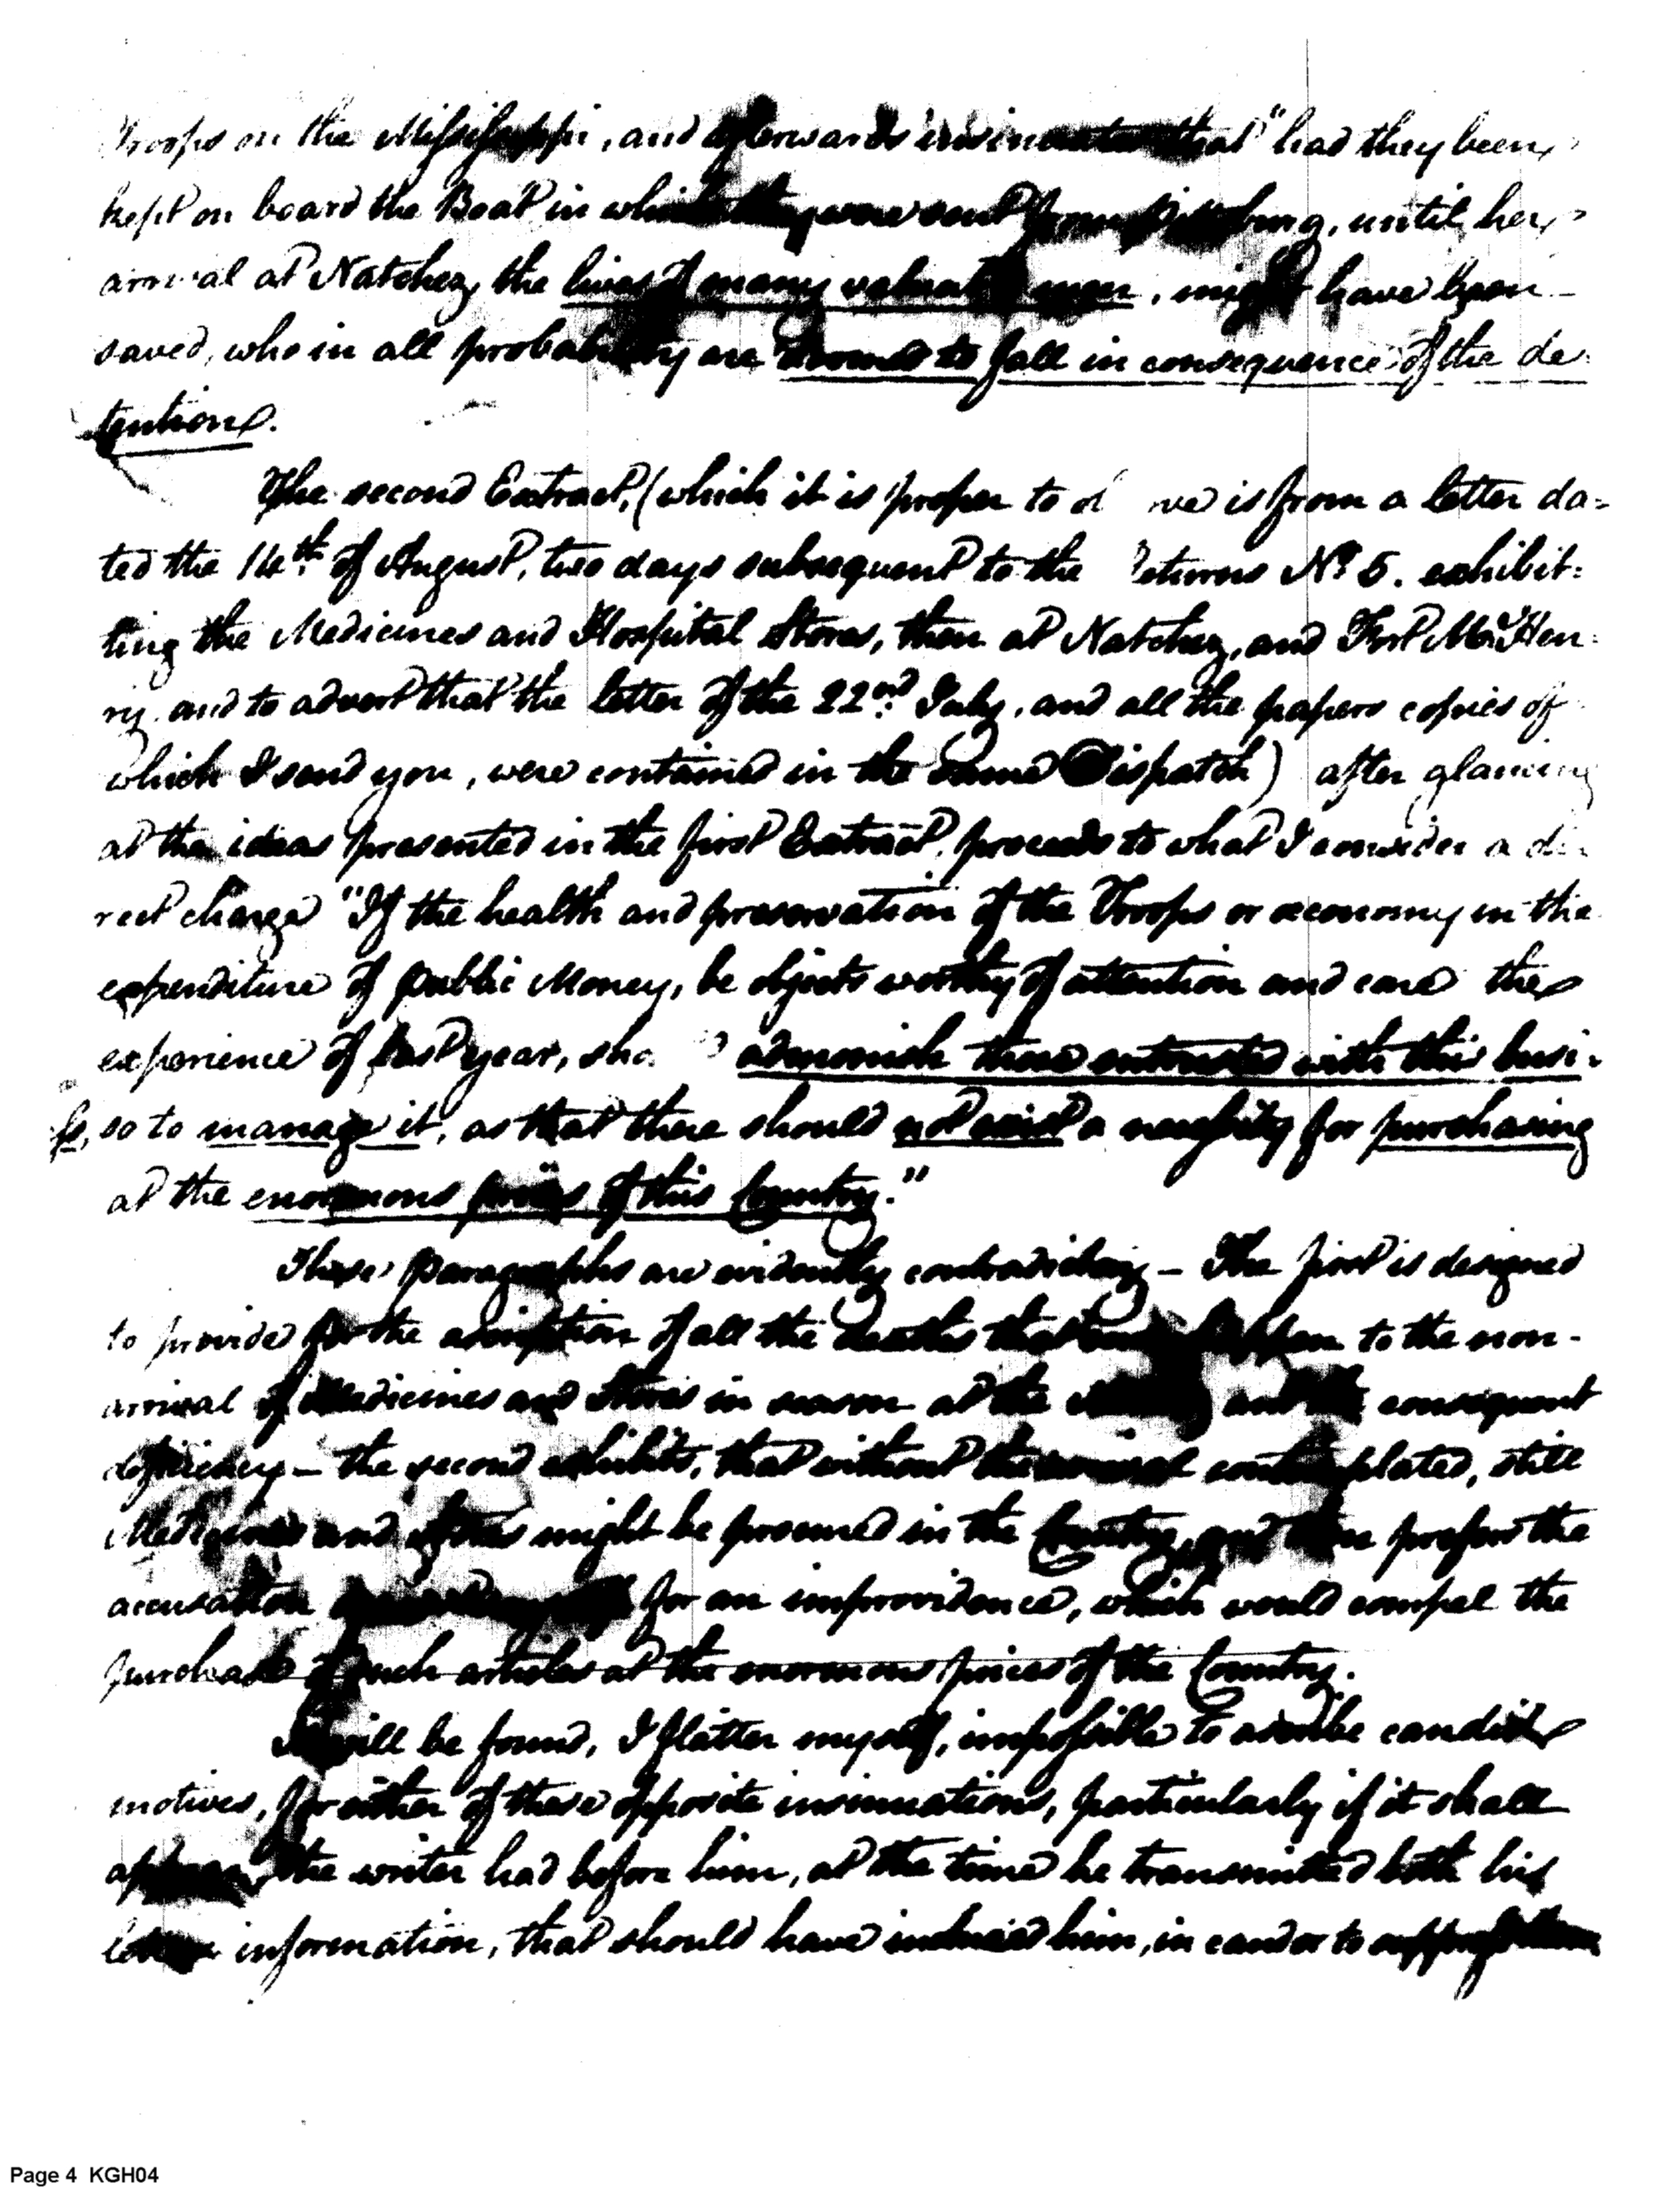 Troops on the Missisippi, and afterwards insinuates that "had they been
kept on board the Boat in which they were sent from Pittsburg, until her
arrival at Natchez, the lives of many valuable men, might have been
saved, who in all probability are doomed to fall in consequence of the de-
tention.
The second Extract, (which it is proper to ve is from a letter da=
ted the 14th. of August, two days subsequent to the Returns No. 5. exhibit=
ting the Medicines and Hospital Stores, then at Natchez, and Fort McHen=
ry. and to advert that the letter of the 22nd. July, and all the papers copies of
which I send you, were contained in the same Dispatch) after glancing
at the ideas presented in the first Extract, proceeds to what I consider a di-
rect charge "If the health and preservation of the Troops or oeconomy in the
expenditure of public Money, be objects worthy of attention and care the
experience of last year, admonish those entrusted with this busi-
ss, so to manage it, as that there should not exist a necessity for purchasing
at the enormous prices of this Country."
These paragraphs are evidently contradictory — The first is designed
to provide for the of all the deaths that happen to the non-
arrival of Medicines and Stores in season at the and the consequent
deficiency — the second exhibits, that without the arrival contemplated, still
Medicines and Stores might be procured in the Country, and then prefers the
accusation for an improvidence, which would compel the
purchase of such articles at the enormous prices of the Country.
It will be found, I flatter myself, impossible to ascribe candid
motives, for either of these opposite insinuations, particularly if it shall
appear, the writer had before him, at the time he transmitted both his
letters information, that should have induced him, in candor to
Page 4 KGH04